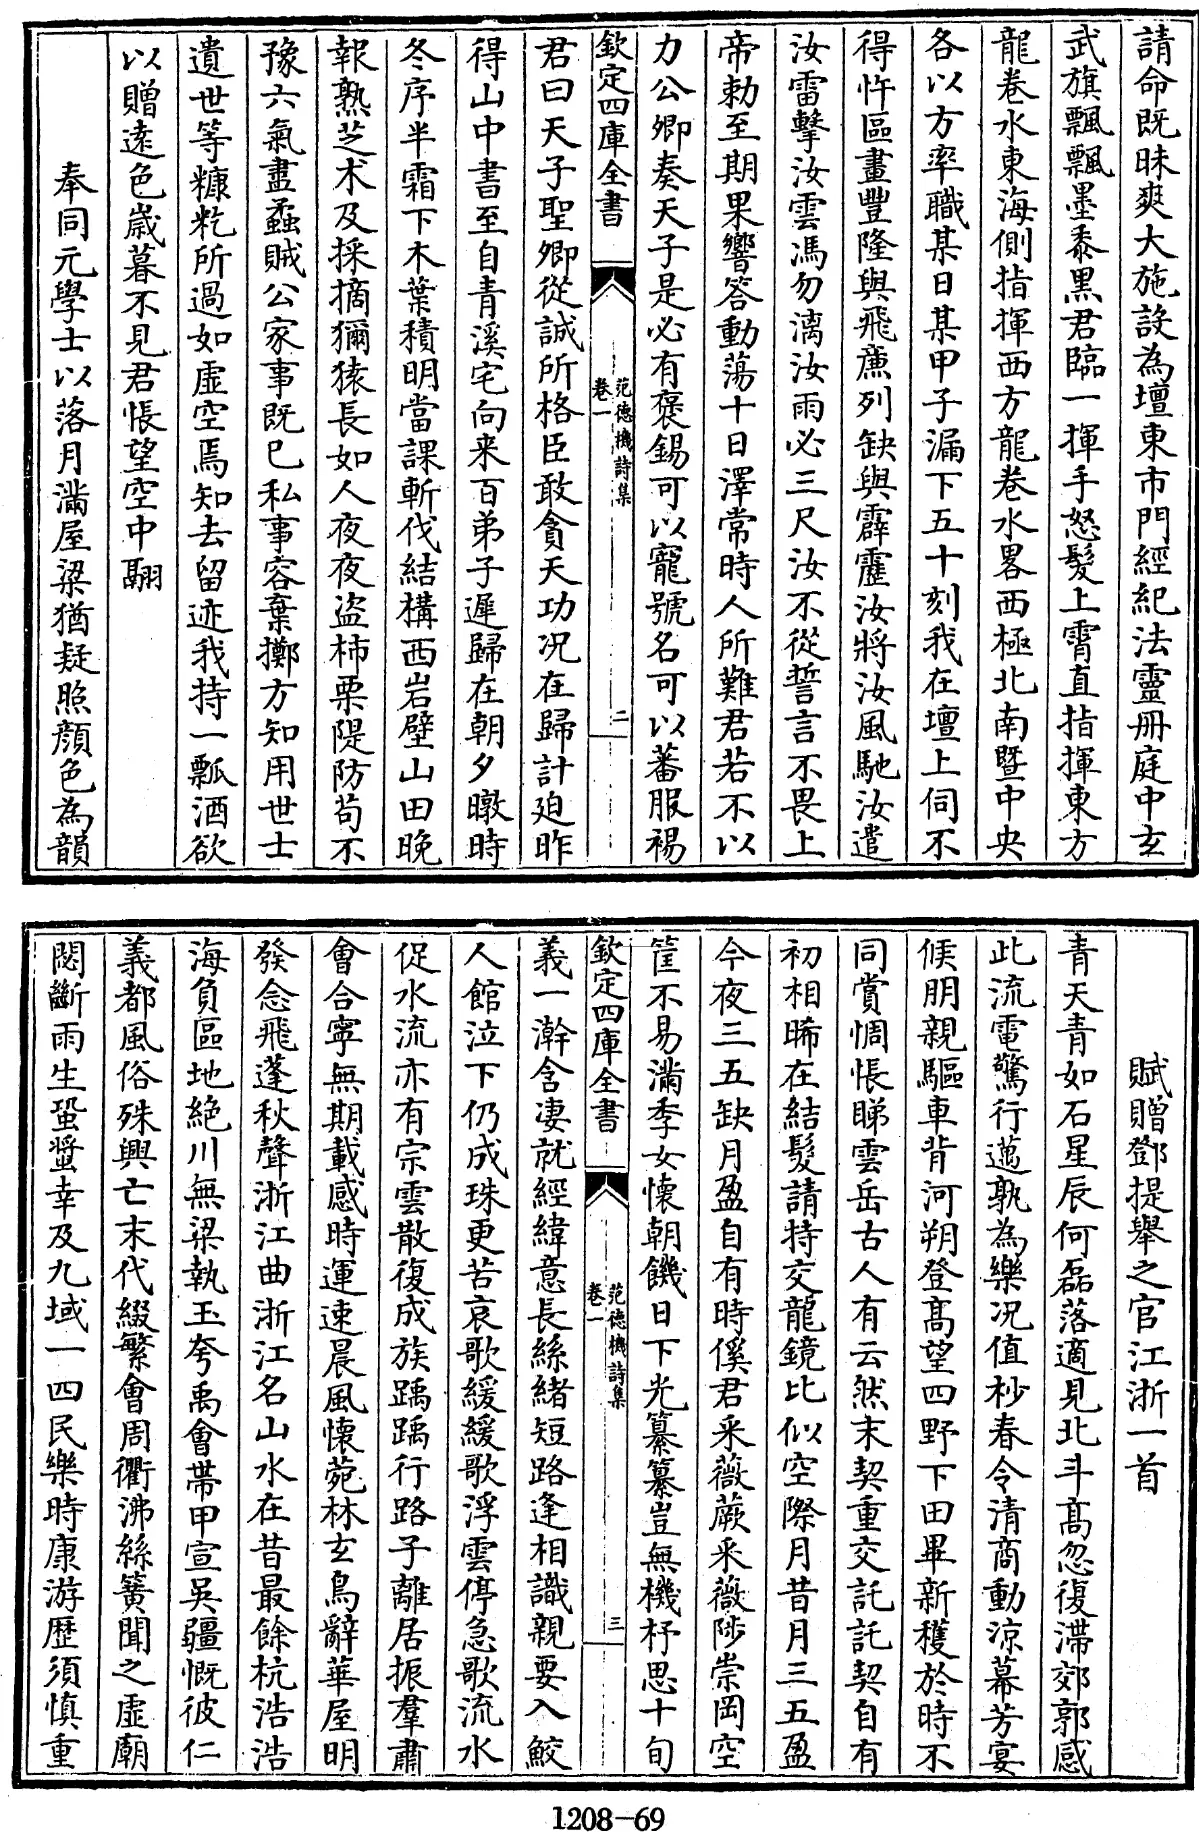 請命既昧爽大施設為壇東市門經紀法靈冊庭中玄
武旗飄飄墨黍黑君臨一揮手怒髮上霄直指揮東方
龍卷水東海側指揮西方龍卷水畧西極北南暨中央
各以方率職某日某甲子漏下五十刻我在壇上伺不
得忤區畫豐隆與飛廉列缺與霹靂汝將汝風馳汝遣
汝雷擊汝雲馮勿漓汝雨必三尺汝不從誓言不畏上
帝勅至期果響答動蕩十日澤常時人所難君若不以
力公卿奏天子是必有褒錫可以寵號名可以蕃服裼
欽定四庫全書
范德機詩集
卷一
二
君曰天子聖卿從誠所格臣敢貪天功况在歸計廹昨
得山中書至自青溪宅向来百弟子遲歸在朝夕暾時
冬序半霜下木葉積明當課斬伐結構西岩壁山田晚
報熟芝术及採摘獮猿長如人夜夜盜柿栗隄防苟不
豫六氣盡蟊賊公家事既已私事容棄擲方知用世士
遺世等糠籺所過如虛空焉知去留迹我持一瓢酒欲
以贈逺色歲暮不見君悵望空中翮
奉同元學士以落月滿屋梁猶疑照顔色為韻
賦贈鄧提舉之官江浙一首
青天青如石星辰何磊落適見北斗髙忽復滯郊郭感
此流電驚行邁孰為樂况值杪春令清商動涼幕芳宴
候朋親驅車背河朔登髙望四野下田畢新穫於時不
同賞惆悵睇雲岳古人有云然末契重交託託契自有
初相晞在結髮請持交龍鏡比似空際月昔月三五盈
今夜三五缺月盈自有時傒君采薇蕨采薇陟崇岡空
筐不易滿季女懷朝饑日下光纂纂豈無機杼思十旬
欽定四庫全書
范德機詩集
卷一
三
義一澣含凄就經緯意長絲緒短路逢相識親要入鮫
人館泣下仍成珠更苦哀歌緩緩歌浮雲停急歌流水
促水流亦有宗雲散復成族踽踽行路子離居振羣肅
會合寧無期載感時運速晨風懷菀林玄鳥辭華屋明
發念飛蓬秋聲浙江曲浙江名山水在昔最餘杭浩浩
海負區地絶川無梁執玉夸禹會帶甲宣吳疆慨彼仁
義都風俗殊興亡末代綴繁會周衢沸絲簧聞之虛廟
閟斷雨生蛩螿幸及九域一四民樂時康游歷須慎重
1208-69